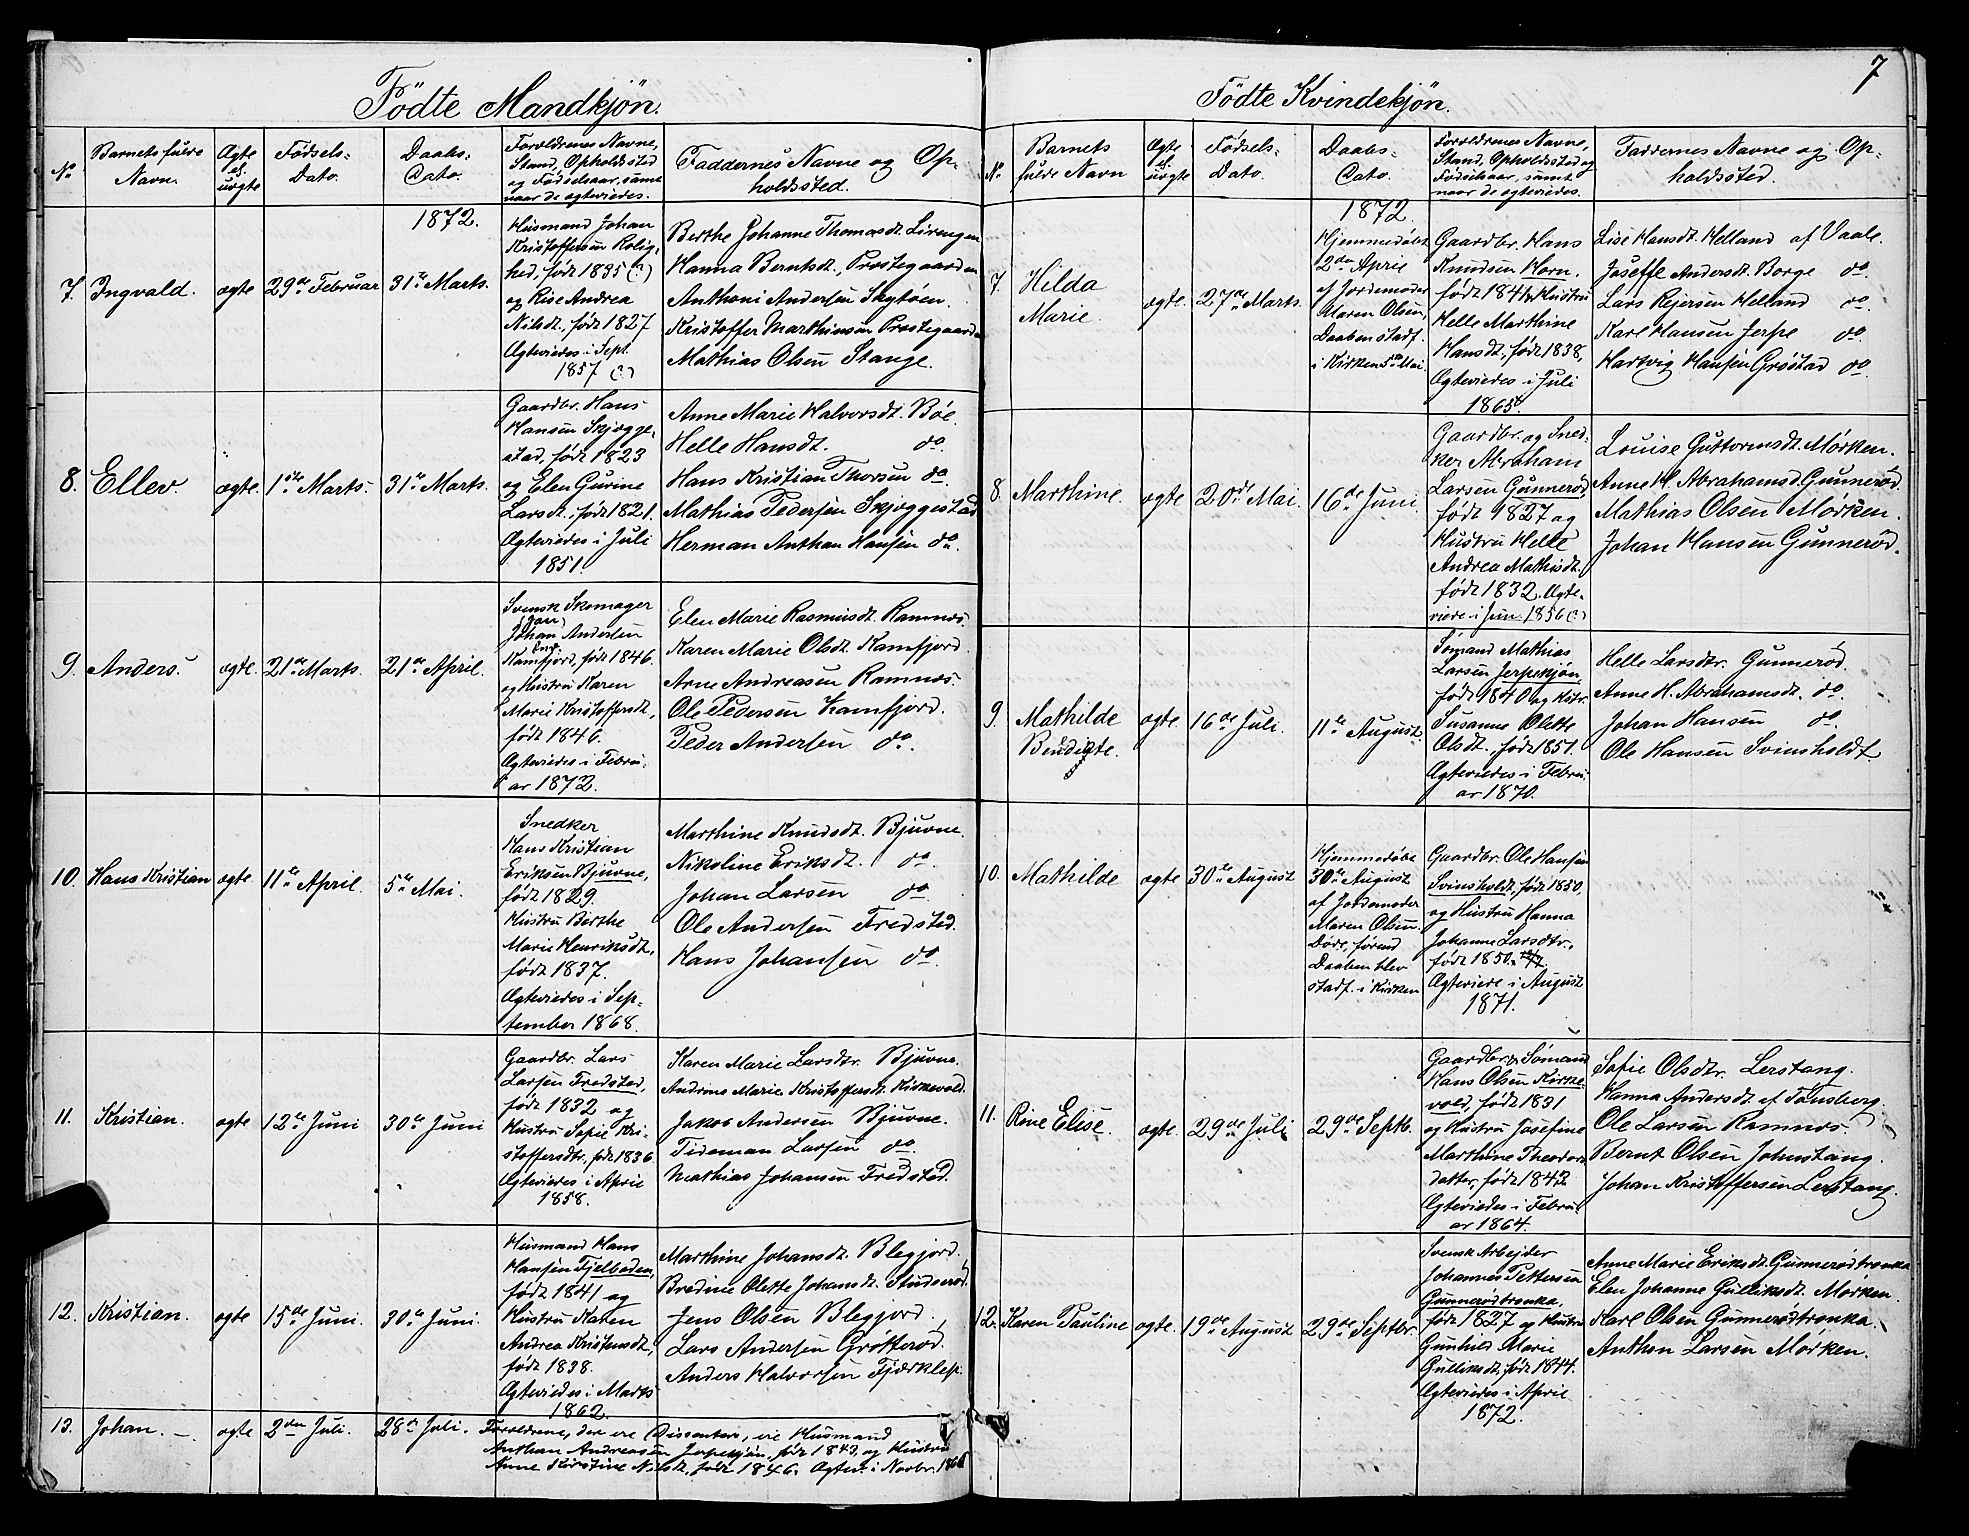 7
Födte Mandkjøn.
No
Barnets fulde
Navn.
Ægte
el.
uægte
Fødsels-
Dato.
Daabs-
Dato.
Forældrenes Navne,
Stand, Opholdssted
og Fødselsaar, samt
naar de ægteviedes.
Faddernes Navne og Op-
holdssted.
1872.
7. Ingvald. ægte 29de Februar 31te Marts.
Husmand Johan
Kristoffersen Rolig-
hed, født 1835 (?)
og Rise Andrea
Nilsdt., født 1827
Ægteviedes i Sept.
1857 (?)
Berthe Johanne Thomasdt. Lirengen
Hanna Berntsdt., Prestegaarden
Anthoni Andersen Skytøen.
Kristoffer Marthinsen Prestegaarden
Mathias Olsen Stange.
8. Ellev. ægte. 1ste Marts. 31te Marts.
Gaardbr. Hans
Hansen Skjægge-
stad, født 1823
og Elen Gurine
Larsdt., født 1821.
Ægteviedes i Juli
1851.
Anne Marie Halvorsdt. Bøe.
Helle Hansdt. do.
Hans Kristian Thorsen do.
Mathias Pedersen Skjæggestad
Herman Anthon Hansen do.
9. Anders. ægte. 21de Marts. 21de April.
Svensk Skomager
Johan Andersen
Kamfjord, født 1846.
og Hustru Karen
Marie Kristoffersdt.,
født 1846.
Ægteviedes i Febru-
ar 1872.
Elen Marie Rasmusdt. Ramnes.
Karen Marie Olsdt. Kamfjord.
Arne Andreasen Ramnes.
Ole Pedersen Kamfjord.
Peder Andersen do.
10. Hans Kristian ægte. 11te April. 5te Mai.
Snedker
Hans Kristian
Eriksen Bjuvne,
født 1829.
Hustru Berthe
Marie Henriksdt,
født 1837.
Ægteviedes i Sep-
tember 1868.
Marthine Knudsdt. Bjuvne.
Nikoline Eriksdt. do.
Johan Larsen do.
Ole Andersen Fredsted.
Hans Johansen do.
11. Kristian. ægte 12te Juni 30te Juni
Gaardbr. Lars
Larsen Fredsted,
født 1832 og
Hustru Sofie Kri-
stoffersdtr., født 1836.
Ægteviedes i April
1858.
Karen Marie Larsdtr. Bjuvne.
Andrine Marie Kristoffersdt. Kirkevold.
Jakob Andersen Bjuvne.
Tideman Larsen do.
Mathias Johansen Fredsted.
12. Kristian. ægte 15de Juni. 30te Juni.
Husmand Hans
Hansen Fjelboden,
født 1841 og
Hustru Karen
Andrea Kristensdt,
født 1838.
Ægteviedes i Marts
1862.
Marthine Johansdt. Blegjord.
Bredine Olette Johansdt. Studserød.
Jens Olsen Blegjord.
Lars Andersen Grøtterød.
Anders Halvorsen Fjærklep.
13. Johan. ægte 2den Juli. 28de Juli.
Forældrene, der ere Dissentere, ere Husmand
Anthon Andreasen Jerpekjøn, født 1843, og Hustru
Anne Kirstine Nilsdt, født 1846. Ægtev. i Novbr. 1866
Födte Kvindekjøn.
No
Barnets
fulde Navn
Ægte
el.
uægte
Fødsels-
Dato.
Daabs-
Dato.
Forældrenes Navne,
Stand, Opholdssted og
Fødselsaar, samt
naar de ægteviedes.
Faddernes Navne og Op-
holdssted.
1872.
7. Hilda
Marie. ægte. 27de Marts.
Hjemmedøbt
2den April
af Jordemoder
Maren Olsen,
Daaben stadf.
i Kirken 5te Mai.
Gaardbr. Hans
Knudsen Horn.
Helle Marthine
Hansdt, født 1838,
Ægteviedes i Juli
1865.
Lise Hansdt. Helland af Vaale.
Joseffe Andersdt. Borge do
Lars Rejersen Helland do
Karl Hansen Jerpe do
Hartvig Hansen Grøstad do
8. Marthine. ægte 20de Mai. 16de Juni.
Gaardbr. og Sned-
ker Abraham
Larsen Gunnerød,
født 1827 og
Hustru Helle
Andrea Mathisdt.
født 1832. Ægte-
viede i Juni 1856 (?)
Louise Guttormsdt. Mørken.
Anne H. Abrahamsd. Gunnerød.
Mathias Olsen Mørken.
Johan Hansen Gunnerød.
9. Mathilde
Bendigte. ægte 16de Juli. 11te August.
Sømand Mathias
Larsen Jerpekjøn,
født 1840 og Hstr.
Susanne Olette
Olsdt., født 1851.
Ægteviedes i Febru-
ar 1870.
Helle Larsdtr. Gunnerød.
Anne H. Abrahamsdt. do.
Johan Hansen do.
Ole Hansen Svinsholdt.
10. Mathilde ægte 30te August
Hjemmedøbt
30te August
af Jordemoder
Maren Olsen.
Døde, førend
Daaben blev
stadf. i Kirken
Gaardbr. Ole Hansen
Svinsholdt, født 1850,
og Hustru Hanna
Johanne Larsdtr.,
født 1850.
Ægteviede i August
1871.
11. Rine Elise. ægte. 29de Juli 29de Septb.
Gaardbr. & Sømand
Hans Olsen Kirke-
vold, født 1831
og Hustru Josefine
Marthine Theodors-
datter, født 1842
Ægteviedes i Febru-
ar 1864.
Sofie Olsdtr. Lerstang.
Hanna Andersdt. af Tønsberg.
Ole Larsen Ramnes.
Bernt Olsen Johnstang.
Johan Kristoffersen Lerstang.
12. Karen Pauline ægte. 19de August 29de Septbr.
Svensk Arbejder
Johannes Pettersen
Gunnerødtronka,
født 1827 og Hustru
Gunhild Marie
Gulliksdt, født 1844.
Ægteviedes i April
1872.
Anne Marie Eriksdt. Gunnerødtronka
Elen Johanne Gulliksdt. Mørken.
Karl Olsen Gunnerødtronka.
Anthon Larsen Mørken.